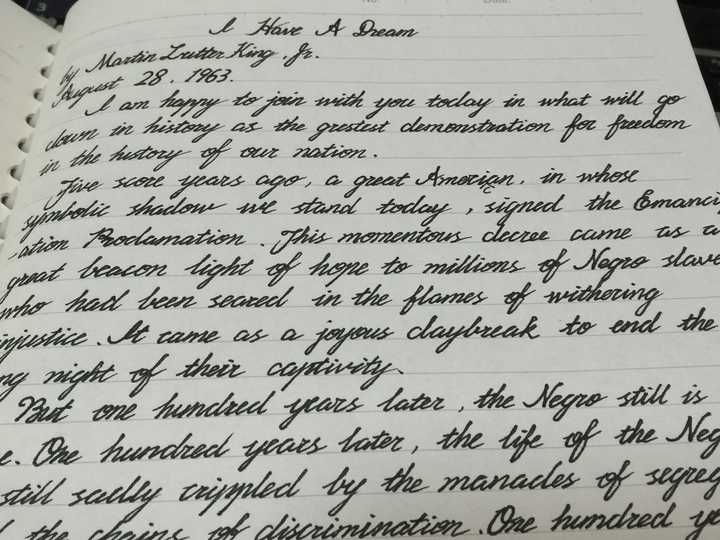 No. Date.
I Have A Dream
by Martin Lutter King, Jr.
August 28, 1963.
I am happy to join with you today in what will go
down in history as the grestest demonstration for freedom
in the history of our nation.
Five score years ago, a great Amerian, in whose
c
symbolic shadow we stand today, signed the Emanci
-ation Proclamation. This momentous decree came as a
great beacon light of hope to millions of Negro slave
who had been seared in the flames of withering
injustice. It came as a joyous daybreak to end the
ng night of their captivity.
But one hundred years later, the Negro still is
e. One hundred years later, the life of the Neg
still sadly crippled by the manacles of segreg
the chains of discrimination. One hundred ye